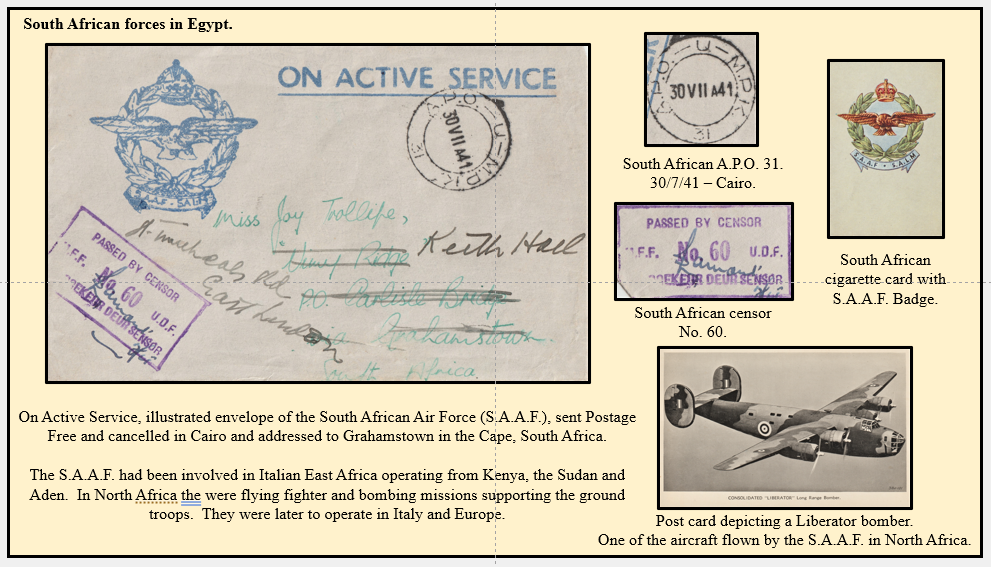 South African forces in Egypt.
ON ACTIVE SERVICE
A.P.O.-U-M.P.K. 31
30 VII A41
S.A.A.F. - S.A.L.M.
Miss Joy Trollipe,
Vimy Ridge
Keith Hall
P.O. Carlisle Bridge
St. Michaels Rd.
East London
Grahamstown.
South Africa.
PASSED BY CENSOR
U.F.F. No 60 U.D.F.
DEUR SENSOR
A.P.O.-U-M.P.K. 31
30 VII A41
South African A.P.O. 31.
30/7/41 – Cairo.
PASSED BY CENSOR
U.F.F. No 60 U.D.F.
GOEKEUR DEUR SENSOR
South African censor
No. 60.
S.A.A.F. - S.A.L.M.
South African
cigarette card with
S.A.A.F. Badge.
CONSOLIDATED "LIBERATOR" Long Range Bomber.
Post card depicting a Liberator bomber.
One of the aircraft flown by the S.A.A.F. in North Africa.
On Active Service, illustrated envelope of the South African Air Force (S.A.A.F.), sent Postage
Free and cancelled in Cairo and addressed to Grahamstown in the Cape, South Africa.
The S.A.A.F. had been involved in Italian East Africa operating from Kenya, the Sudan and
Aden. In North Africa the were flying fighter and bombing missions supporting the ground
troops. They were later to operate in Italy and Europe.